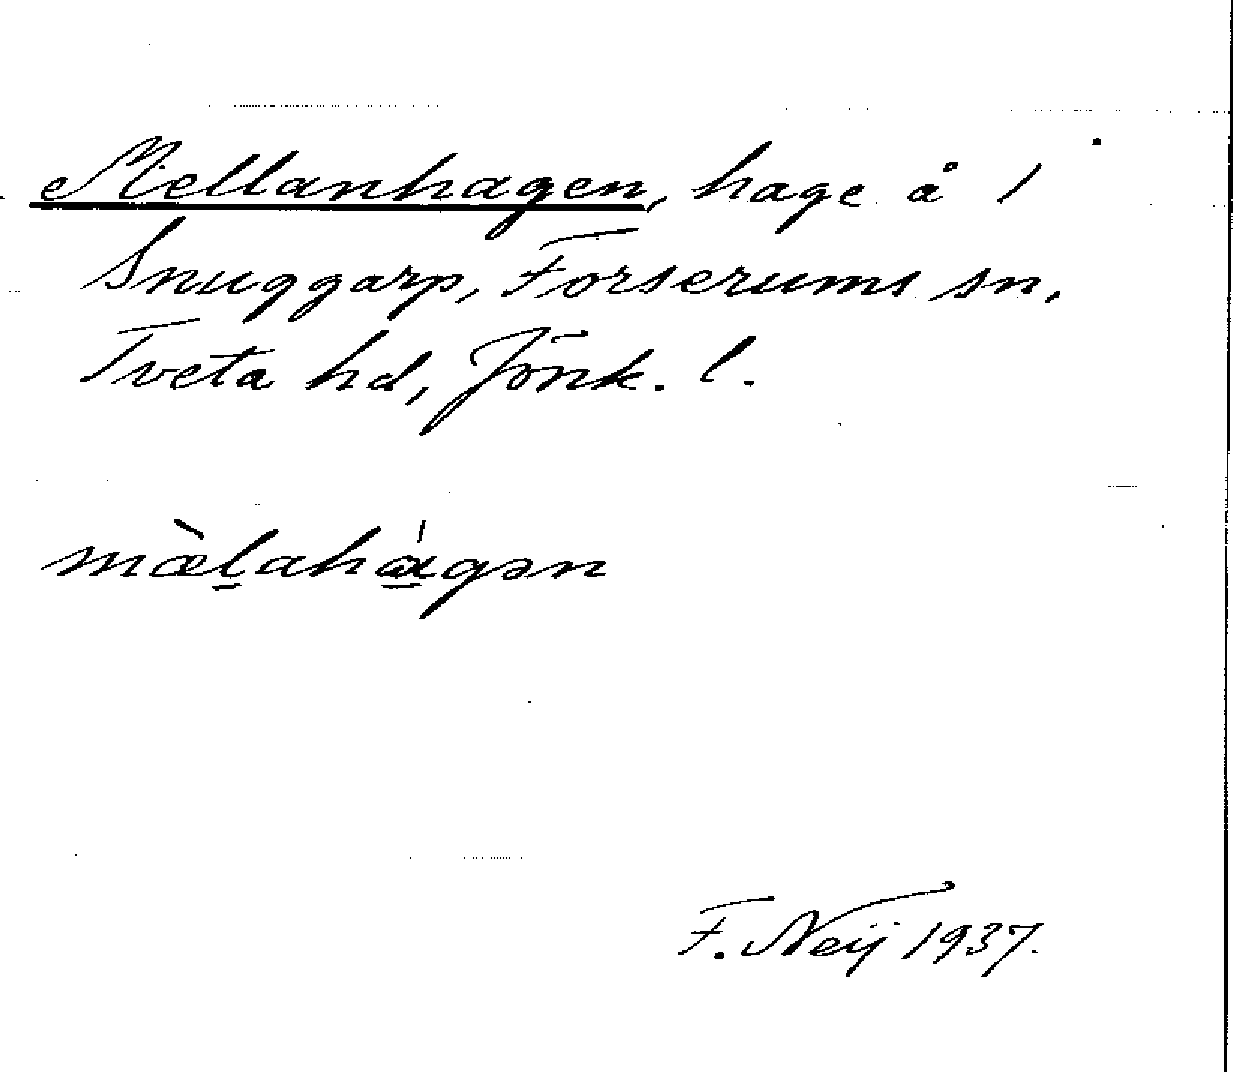 Mellanhagen, hage å 1
Snuggarp, Forserums sn,
Tveta hd, Jönk. l.
mæ̀l̲ahá̲gən
F. Neij 1937.